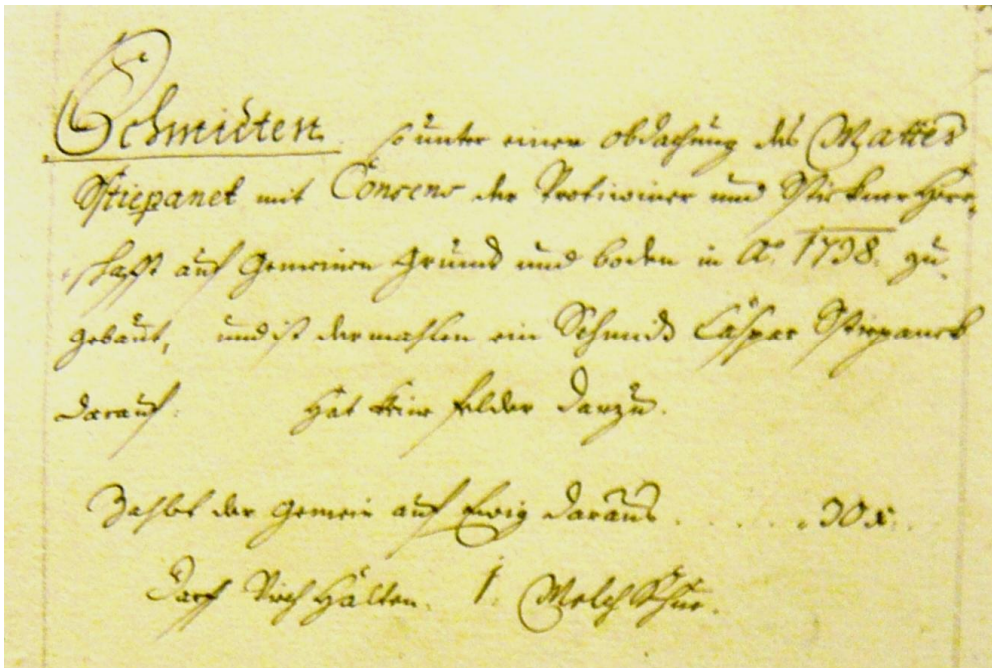 Schmitten. so unter einer obdachung des Mattes
Stiepanek mit Consens der Protiwiner und Stiekner Herr,,
schafft auf Gemeinen Grund und boden in Aō. 1738. zu,,
gebaut, und ist dermahlen ein Schmidt Caspar Stiepanek
darauf. Hat keine felder darzu.
Zahlet der Gemein auf Ewig daraus . . . . . 30 x.
Darf Vieh Halten. 1. Melch Khue.